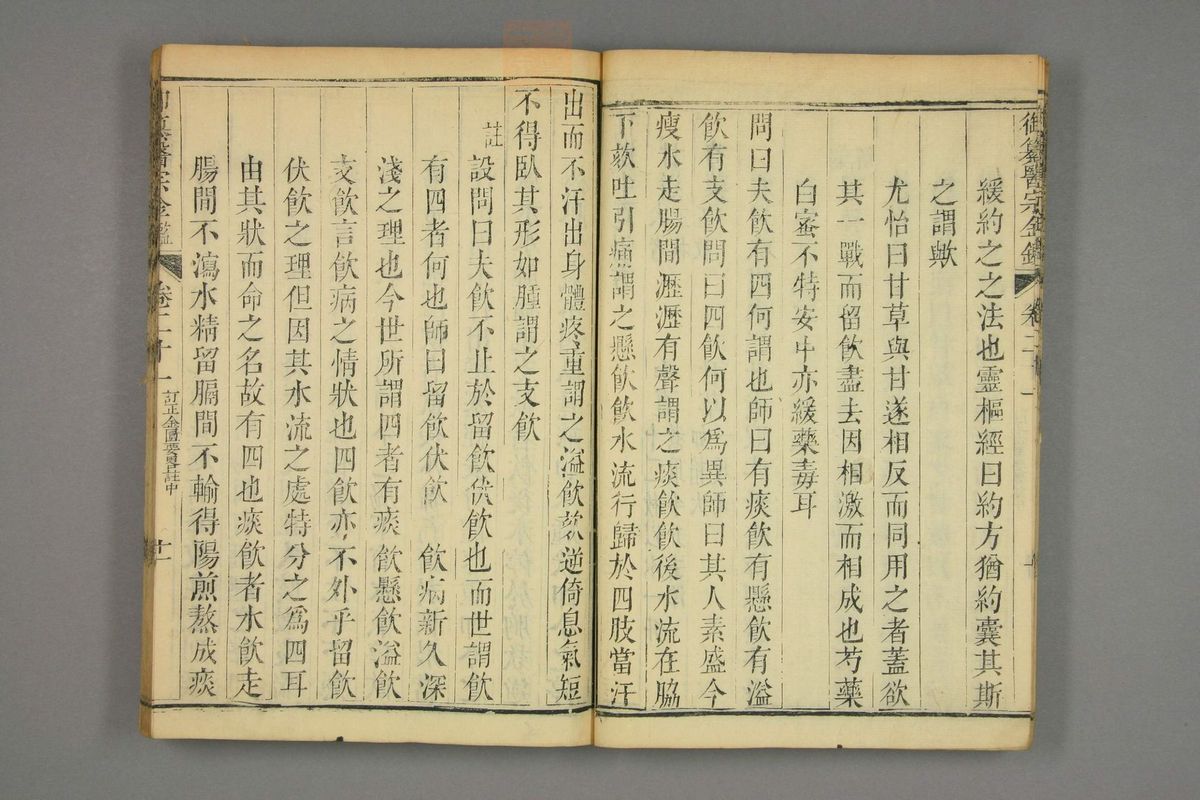 御纂醫宗金鑑 卷二十一
緩約之之法也靈樞經曰約方猶約囊其斯
之謂歟
尤怡曰甘草與甘遂相反而同用之者蓋欲
其一戰而留飲盡去因相激而相成也芍藥
白蜜不特安中亦緩藥毒耳
問曰夫飲有四何謂也師曰有痰飲有懸飲有溢
飲有支飲問曰四飲何以爲異師曰其人素盛今
瘦水走腸間瀝瀝有聲謂之痰飲飲後水流在脇
下欬吐引痛謂之懸飲飲水流行歸於四肢當汗
出而不汗出身體疼重謂之溢飲欬逆倚息氣短
不得臥其形如腫謂之支飲
註
設問曰夫飲不止於留飲伏飲也而世謂飲
有四者何也師曰留飲伏飲 飲病新久深
淺之理也今世所謂四者有痰 飲懸飲溢飲
支飲言飲病之情狀也四飲亦不外乎留飲
伏飲之理但因其水流之處特分之爲四耳
由其狀而命之名故有四也痰飲者水飲走
腸間不瀉水精留膈間不輸得陽煎熬成痰
醫宗金鑑 卷二十一 訂正金匱要畧註中 廿一